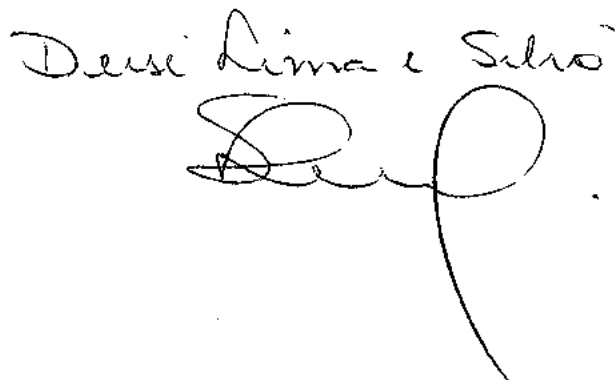 Deise Lima e Silva